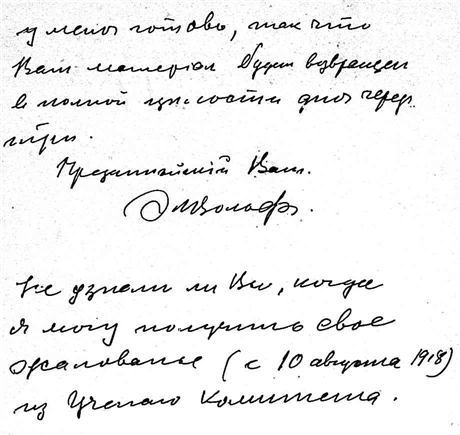 у меня готово, так что
Ваш матеріал будет возвращен
в полной цѣлости дня через
три.
Преданнѣйшій Вам.
ЭМВольф.
Не узнали ли Вы, когда
я могу получить свое
жалованье (с 10 августа 1918)
из Ученаго Комитета.